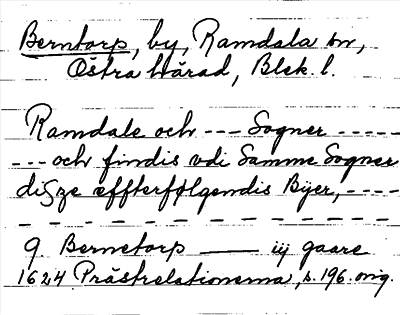 Berntorp, by, Ramdala sn,
Östra Härad, Blek. l.
Ramdale och --- Sogner -----
--- och findis vdi Samme Sogner
disze effterfølgendis Byer, ----
9. Bernetorp —— iij gaare
1624 Prästrelationerna, s. 196. orig.